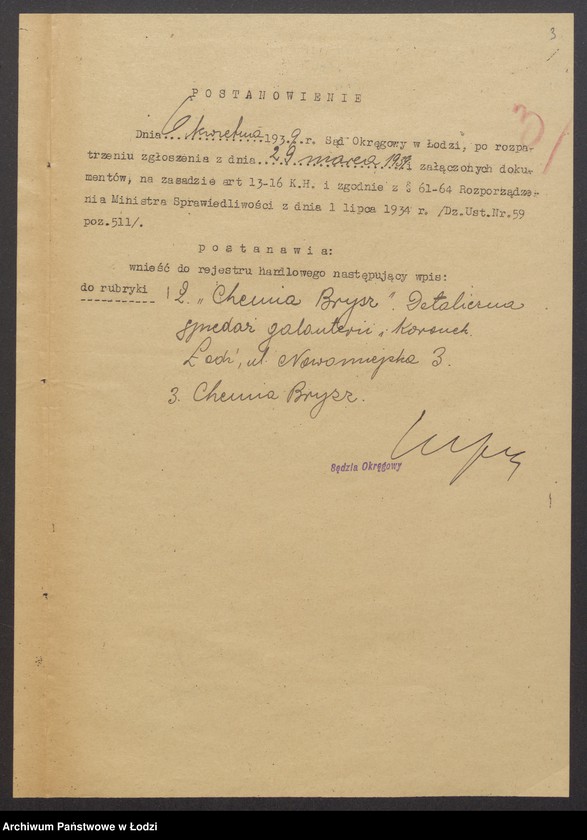 3
3/
POSTANOWIENIE
Dnia 6 kwietnia 1939.r. Sąd Okręgowy w Łodzi, po rozpa-
trzeniu zgłoszenia z dnia 29 marca 1939. i załączonych doku-
mentów, na zasadzie art 13-16 K.H. i zgodnie z § 61-64 Rozporządze-
nia Ministra Sprawiedliwości z dnia 1 lipca 1934 r. /Dz.Ust.Nr.59
poz.511/.
postanawia:
wnieść do rejestru handlowego następujący wpis:
do rubryki 2. „Chemia Brysz". Detaliczna
spedaż galanterii i koronek.
Łódź, ul. Nowomiejska 3.
3. Chemia Brysz.
Sędzia Okręgowy
Archiwum Państwowe w Łodzi